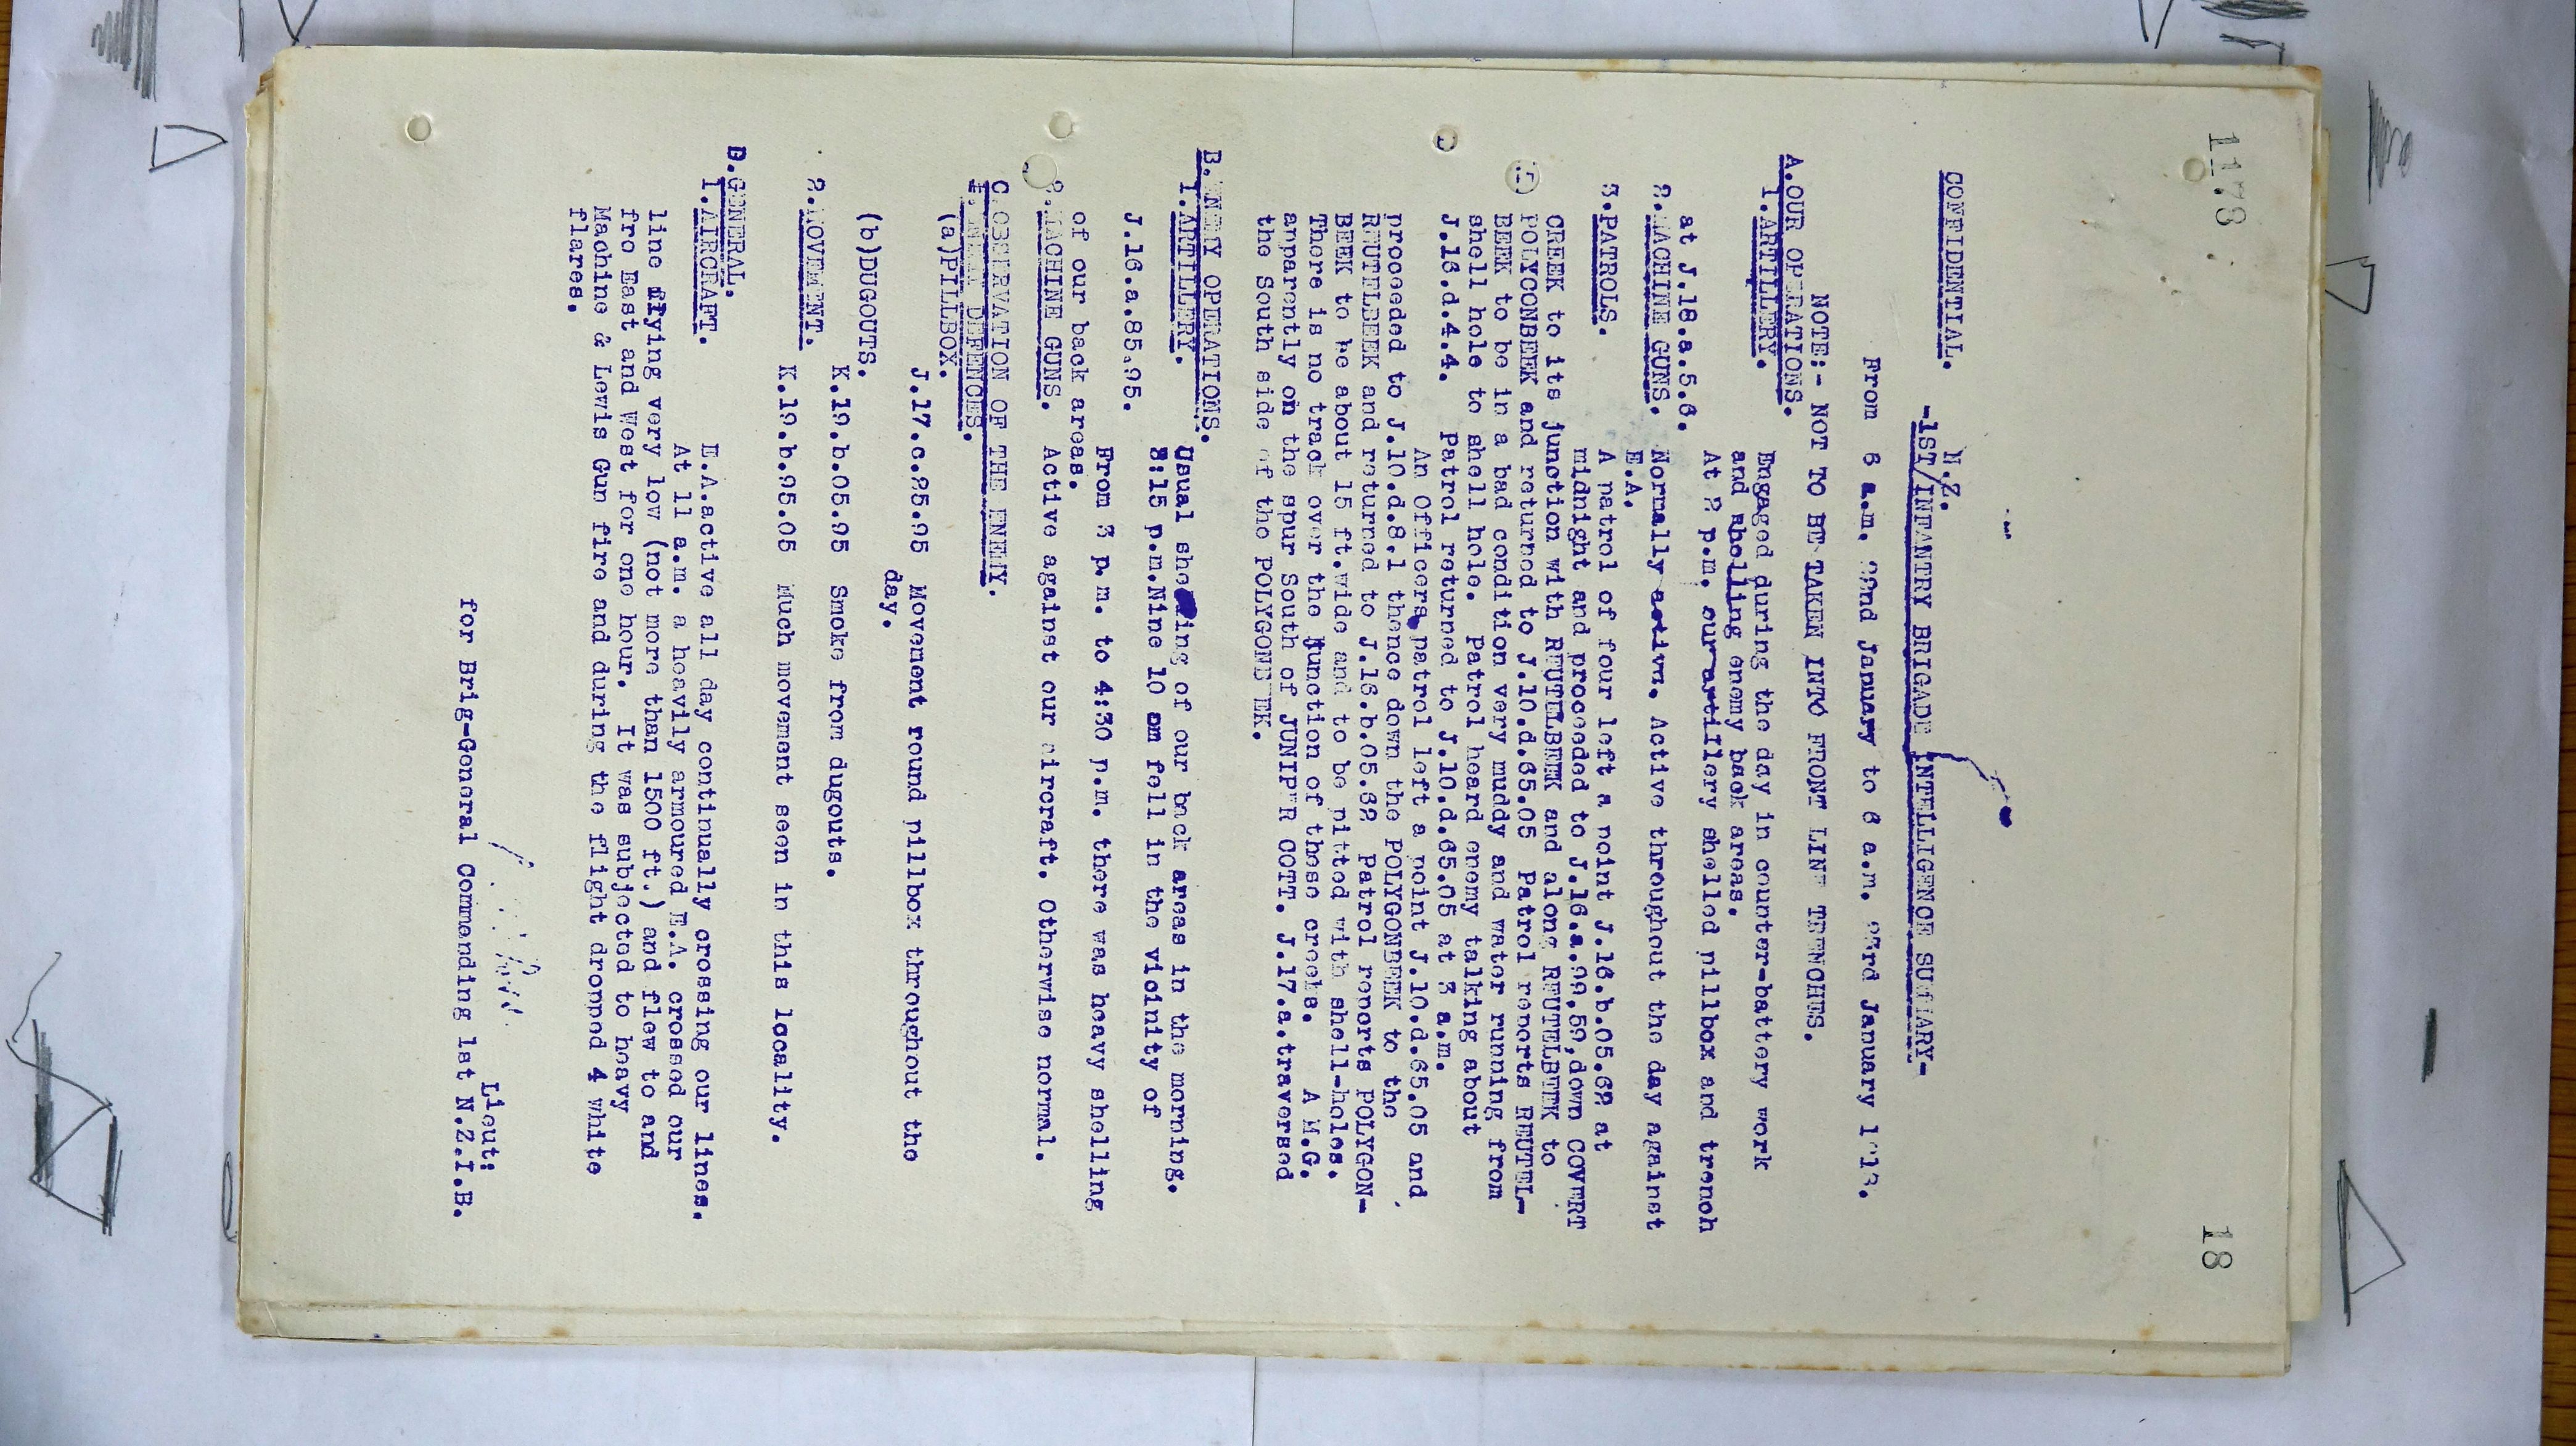 1178.
18
CONFIDENTIAL.
N.Z.
-1ST/INFANTRY BRIGADE INTELLIGENCE SUMMARY-
From 6 a.m. 22nd January to 6 a.m. 23rd January 1918.
NOTE:- NOT TO BE TAKEN INTO FRONT LINE TRENCHES.
A.OUR OPERATIONS.
1.ARTILLERY.
Engaged during the day in counter-battery work
and shelling enemy back areas.
At 2 p.m. our artillery shelled pillbox and trench
at J.18.a.5.6.
2.MACHINE GUNS.
Normally active. Active throughout the day against
E.A.
3.PATROLS.
A patrol of four left a point J.16.b.05.62 at
midnight and proceeded to J.16.a.99.59,down COVERT
CREEK to its junction with REUTELBEEK and along REUTELBEEK to
POLYCONBEEK and returned to J.10.d.65.05 Patrol reports REUTEL-
BEEK to be in a bad condition very muddy and water running from
shell hole to shell hole. Patrol heard enemy talking about
J.16.d.4.4. Patrol returned to J.10.d.65.05 at 3 a.m.
An Officers patrol left a point J.10.d.65.05 and
proceeded to J.10.d.8.1 thence down the POLYGONBEEK to the
REUTELBEEK and returned to J.16.b.05.62 Patrol reports POLYGON-
BEEK to be about 15 ft.wide and to be pitted with shell-holes.
There is no track over the junction of these creeks. A M.G.
apparently on the spur South of JUNIPER COTT. J.17.a.traversed
the South side of the POLYGONBEEK.
B.ENEMY OPERATIONS.
1.ARTILLERY.
Usual shelling of our back areas in the morning.
3:15 p.m.Nine 10 cm fell in the vicinity of
J.16.a.85.95.
From 3 p.m. to 4:30 p.m. there was heavy shelling
of our back areas.
2.MACHINE GUNS. Active against our aircraft. Otherwise normal.
C.OBSERVATION OF THE ENEMY.
1.ENEMY DEFENCES.
(a)PILLBOX.
J.17.c.25.95 Movement round pillbox throughout the
day.
(b)DUGOUTS.
K.19.b.05.95 Smoke from dugouts.
2.MOVEMENT.
K.19.b.95.05 Much movement seen in this locality.
D.GENERAL.
1.AIRCRAFT.
E.A.active all day continually crossing our lines.
At 11 a.m. a heavily armoured E.A. crossed our
line flying very low (not more than 1500 ft.) and flew to and
fro East and West for one hour. It was subjected to heavy
Machine & Lewis Gun fire and during the flight dropped 4 white
flares.
Lieut:
for Brig-General Commanding 1st N.Z.I.B.